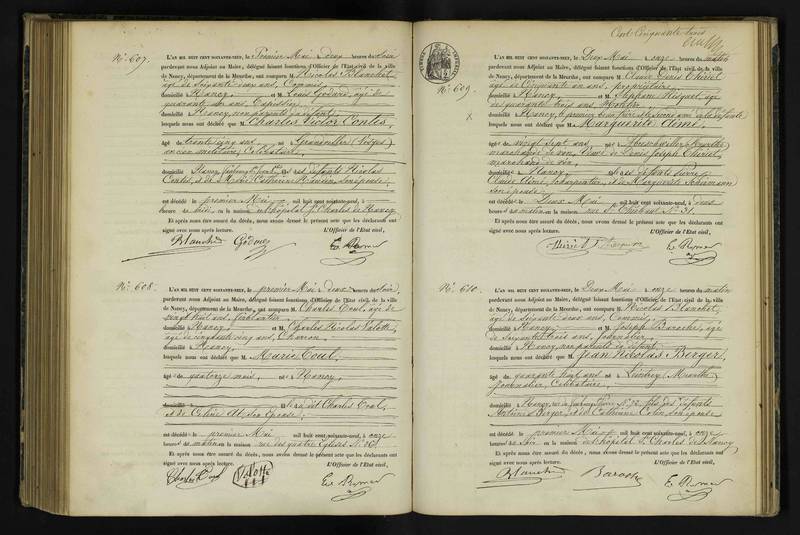 N° 607.
L'AN MIL HUIT CENT SOIXANTE-NEUF, le Premier Mai à deux heures du soir
pardevant nous Adjoint au Maire, délégué faisant fonctions d'Officier de l'Etat civil de la ville
de Nancy, département de la Meurthe, ont comparu M. Nicolas Blanchet,
âgé de soixante deux ans, Commis,
domicilié à Nancy, et M. Louis Godvin, âgé de
quarante ans, Tapissier,
domicilié à Nancy, non parents du défunt
lesquels nous ont déclaré que M. Charles Victor Contes,
âgé de trente cinq ans né à Grandviller (Vosges)
ancien militaire, Célibataire,
domicilié à Nancy, et fils des défunts Nicolas
Contes, et de Marie Catherine son épouse
est décédé le premier Mai mil huit cent soixante-neuf, à
heure de midi en la maison hôpital St Charles de Nancy,
Et après nous être assuré du décès, nous avons dressé le présent acte que les déclarants ont
signé avec nous après lecture. L'Officier de l'Etat civil,
N° 608.
L'AN MIL HUIT CENT SOIXANTE-NEUF, le premier Mai à deux heures du soir,
pardevant nous Adjoint au Maire, délégué faisant fonctions d'Officier de l'Etat civil de la ville
de Nancy, département de la Meurthe, ont comparu M. Charles Toul, âgé de
vingt huit ans, ferblantier
domicilié à Nancy, et M. Charles Nicolas Valotte,
âgé de cinquante cinq ans, Charron,
domicilié à Nancy,
lesquels nous ont déclaré que Marie Toul,
âgé de quatorze mois, né à Nancy,
domicilié à dit Charles Toul,
et de Céline son épouse
est décédé le premier Mai mil huit cent soixante-neuf, à onze
heures du matin en la maison rue des quatre Eglises N° 36
Et après nous être assuré du décès, nous avons dressé le présent acte que les déclarants ont
signé avec nous après lecture. L'Officier de l'Etat civil,
Charles Toul Valotte
Cent Cinquante trois
N° 609
L'AN MIL HUIT CENT SOIXANTE-NEUF, le Deux Mai à onze heures du matin
pardevant nous Adjoint au Maire, délégué faisant fonctions d'Officier de l'Etat civil de la ville
de Nancy, département de la Meurthe, ont comparu M. Claude Denis Thiriet
âgé de Cinquante un ans, propriétaire,
domicilié à Nancy, et M. Stéphane âgé
de quarante trois ans,
domicilié à Nancy, le premier beau frère de la défunte
lesquels nous ont déclaré que M. Marguerite Aimé,
âgé de vingt sept ans, né à (Meurthe)
marchande de vin, Veuve de Denis Joseph Thiriet,
marchand de vin,
domicilié à Nancy, et fille des défunts Pierre
Claude Aimé, Charpentier, et de Marguerite
son épouse
est décédé le Deux Mai mil huit cent soixante-neuf, à deux
heures du matin en la maison rue St Thiébaut N° 31.
Et après nous être assuré du décès, nous avons dressé le présent acte que les déclarants ont
signé avec nous après lecture. L'Officier de l'Etat civil,
N° 610.
L'AN MIL HUIT CENT SOIXANTE-NEUF, le Deux Mai à onze heures du matin
pardevant nous Adjoint au Maire, délégué faisant fonctions d'Officier de l'Etat civil de la ville
de Nancy, département de la Meurthe, ont comparu M. Nicolas Blanchet,
âgé de soixante deux ans, Commis,
domicilié à Nancy, et M. Joseph Baroche, âgé
de soixante trois ans, Journalier,
domicilié à Nancy, non parents du défunt
lesquels nous ont déclaré que M. Jean Nicolas Berger,
âgé de quarante huit ans né à (Meurthe)
Journalier, Célibataire,
domicilié à Nancy, N° 32, fils des défunts
Antoine Berger, et de Catherine Colin son épouse
est décédé le premier Mai mil huit cent soixante-neuf, à onze
heures du soir en la maison de l'hôpital St Charles de Nancy
Et après nous être assuré du décès, nous avons dressé le présent acte que les déclarants ont
signé avec nous après lecture. L'Officier de l'Etat civil,